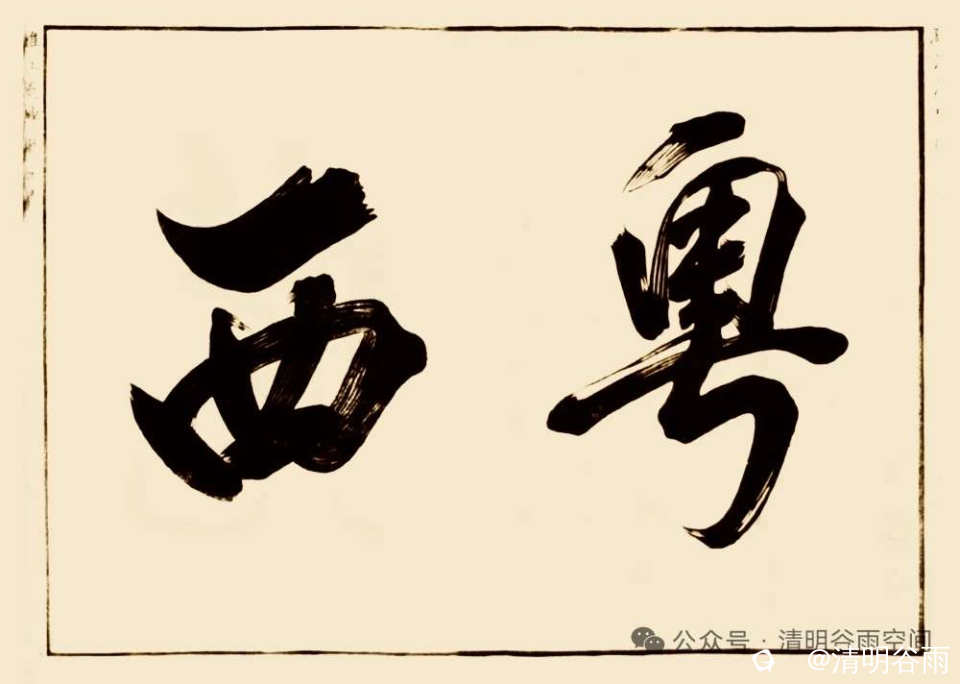 粤西
公众号 · 清明谷雨空间
@清明谷雨